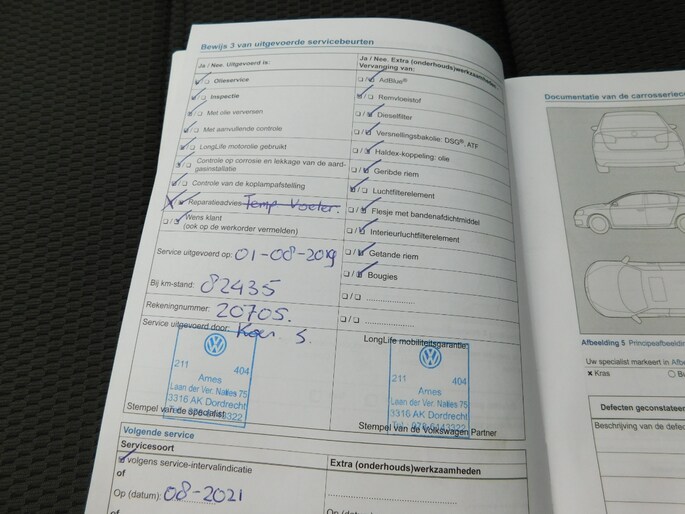 Bewijs 3 van uitgevoerde servicebeurten
Ja / Nee. Uitgevoerd is:
Olieservice
Inspectie
Met olie verversen
Met aanvullende controle
LongLife motorolie gebruikt
Controle op corrosie en lekkage van de aard-
gasinstallatie
Controle van de koplampafstelling
Reparatieadvies Temp Voeler.
Wens klant
(ook op de werkorder vermelden)
Service uitgevoerd op: 01-08-2019
Bij km-stand: 82435
Rekeningnummer: 20705.
Service uitgevoerd door: S.
211 404
Ames
Laan der Ver. Naties 75
3316 AK Dordrecht
Stempel van de specialist
Ja / Nee. Extra (onderhouds)werkzaamheden
Vervanging van:
AdBlue®
Remvloeistof
Dieselfilter
Versnellingsbakolie: DSG®, ATF
Haldex-koppeling: olie
Geribde riem
Luchtfilterelement
Flesje met bandenafdichtmiddel
Interieurluchtfilterelement
Getande riem
Bougies
LongLife mobiliteitsgarantie
211 404
Ames
Laan der Ver. Naties 75
3316 AK Dordrecht
Tel.: 078-6143322
Stempel van de Volkswagen Partner
Volgende service
Servicesoort
volgens service-intervalindicatie
of
Op (datum): 08-2021
of
Extra (onderhouds)werkzaamheden
Documentatie van de carrosserie
Afbeelding 5 Principeafbeelding
Uw specialist markeert in
x Kras
Defecten geconstateer
Beschrijving van de defec